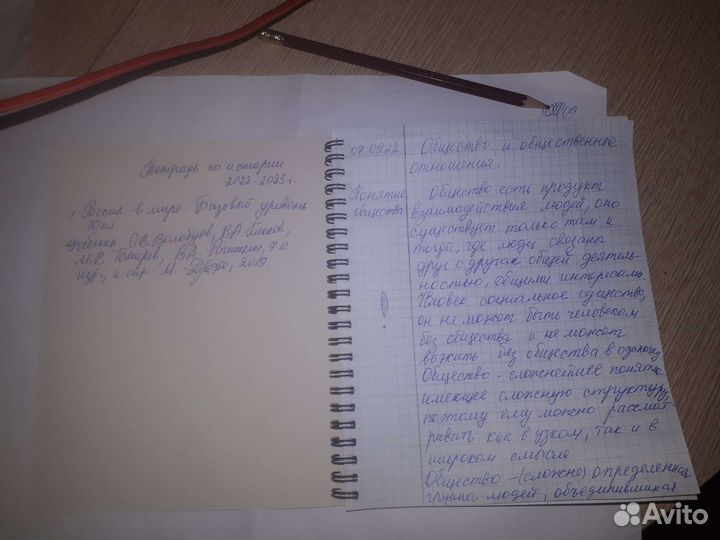 Тетрадь по истории
2022-2023 г.
Россия в мире. Базовый уровень
10 кл
Учебник О.В. Волобуев, В.А. Клоков,
М.В. Пономарев, В.А. Рогожкин, 7-е
изд., и стр. М. - Дрофа, 2019.
07.09.22
Общество и общественные
отношения.
Понятие
общества
Общество есть продукт
взаимодействия людей, оно
существует только там и
тогда, где люди связаны
друг с другом общей деятель-
ностью, общими интересами.
Человек социальное существо,
он не может быть человеком
без общества и не может
выжить без общества в
Общество - сложнейшее понятие
имеющее сложную структуру,
поэтому ему можно рассмат-
ривать как в узком, так и в
широком смысле.
Общество - (сложно) определенная
группа людей, объединившихся
Avito